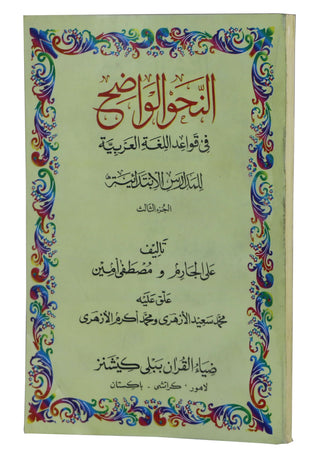 النحو الواضح
في قواعد اللغة العربية
للمدارس الابتدائية
الجزء الثالث
تأليف
علي الجارم و مصطفى أمين
علق عليه
محمد سعيد الأزهري ومحمد أكرم الأزهري
ضياء القرآن پبلی کیشنز
لاهور - کراتشی - باکستان